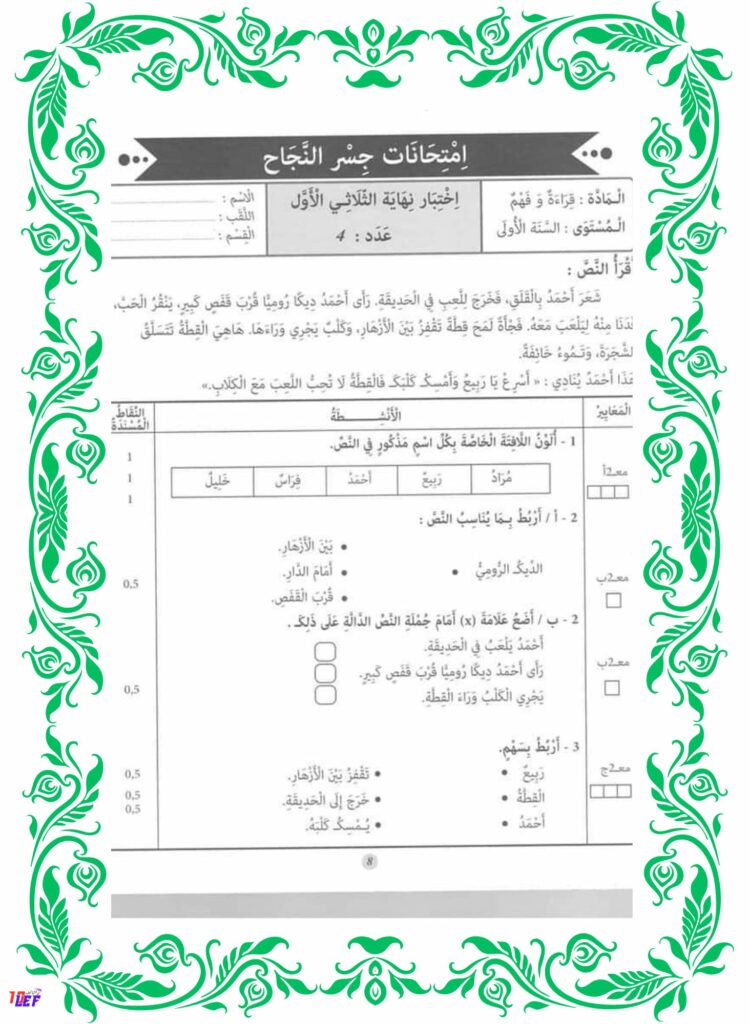 اِمْتِحَانَات جِسْر النَّجَاح
الْـمَادَّة : قِرَاءَةٌ وَ فَهْمٌ
الْـمُسْتَوَى : السَّنَة الْأُولَى
اِخْتِبَار نِهَايَة الثّلَاثِـي الْأَوَّل
عَدَد : 4
الْاِسْم :
اللَّقَب :
الْقِسْم :
أَقْرَأُ النَّصَّ :
شَعَرَ أَحْمَدُ بِالْقَلَقِ، فَخَرَجَ لِلَّعِبِ فِي الْحَدِيقَةِ. رَأَى أَحْمَدُ دِيكًا رُومِيًّا قُرْبَ قَفَصٍ كَبِيرٍ، يَنْقُرُ الْحَبَّ،
فَدَنَا مِنْهُ لِيَلْعَبَ مَعَهُ. فَجْأَةً لَمَحَ قِطَّةً تَقْفِزُ بَيْنَ الْأَزْهَارِ، وَكَلْبٌ يَجْرِي وَرَاءَهَا. هَاهِيَ الْقِطَّةُ تَتَسَلَّقُ
الشَّجَرَةَ، وَتَـمُوءُ خَائِفَةً.
هَذَا أَحْمَدُ يُنَادِي : « أَسْرِعْ يَا رَبِيعُ وَأَمْسِكْ كَلْبَكَ فَالْقِطَّةُ لَا تُحِبُّ اللَّعِبَ مَعَ الْكِلَابِ.»
الْمَعَايِيرُ
الْأَنْشِـــطَةُ
النِّقَاطُ الْمُسْنَدَةُ
1 - أُلَوِّنُ اللَّافِتَةَ الْخَاصَّةَ بِكُلِّ اسْمٍ مَذْكُورٍ فِي النَّصِّ.
معـ2أ
1
1
1
مُرَادُ
رَبِيعٌ
أَحْمَدُ
فِرَاسٌ
خَلِيلٌ
2 - أ / أَرْبُطُ بِـمَا يُنَاسِبُ النَّصَّ :
معـ2ب
0,5
الدِّيكُ الرُّومِيُّ
بَيْنَ الْأَزْهَارِ.
أَمَامَ الدَّارِ.
قُرْبَ الْقَفَصِ.
2 - ب / أَضَعُ عَلَامَةَ (x) أَمَامَ جُمْلَةِ النَّصِّ الدَّالَّةِ عَلَى ذَلِكَ .
معـ2ب
0,5
أَحْمَدُ يَلْعَبُ فِي الْحَدِيقَةِ.
رَأَى أَحْمَدُ دِيكًا رُومِيًّا قُرْبَ قَفَصٍ كَبِيرٍ.
يَجْرِي الْكَلْبُ وَرَاءَ الْقِطَّةِ.
3 - أَرْبُطُ بِسَهْمٍ.
معـ2ج
0,5
0,5
0,5
رَبِيعٌ
تَقْفِزُ بَيْنَ الْأَزْهَارِ.
الْقِطَّةُ
خَرَجَ إِلَى الْحَدِيقَةِ.
أَحْمَدُ
يُـمْسِكُ كَلْبَهُ.
8
LEF